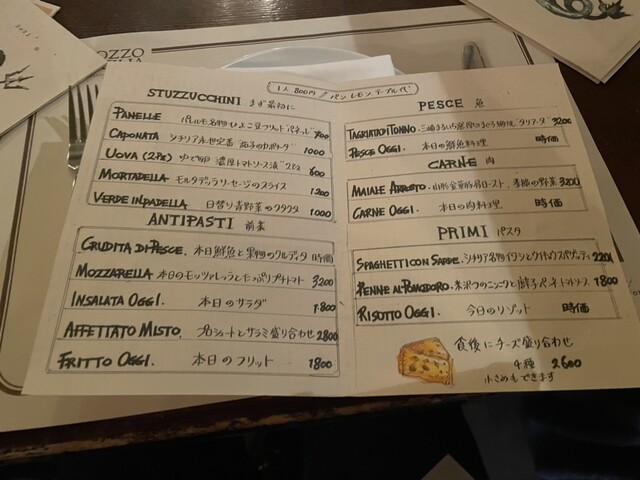 OZZO
1人 800円 パン レモン テーブル代
STUZZUCCHINI まず最初に
PANELLE パレルモ名物ひよこ豆フリット"パネッレ" 700
CAPONATA シチリア永世定番 "茄子のカポナータ" 1000
UOVA (2Pz) ゆで卵 濃厚トマトソース漬 2Pz 600
MORTADELLA モルタデッラソーセージのスライス 1200
VERDE IN PADELLA 日替り青野菜のクタクタ 1000
ANTIPASTI 前菜
CRUDITA DI PESCE. 本日鮮魚と果物のクルディタ 時価
MOZZARELLA 本日のモッツァレッラとたっぷりプチトマト 3200
INSALATA OGGI. 本日のサラダ 1.800
AFFETTATO MISTO. プロシュートとサラミ盛り合わせ 2800
FRITTO OGGI. 本日のフリット 1800
PESCE 魚
TAGLIATA DI TONNO. "タリアータ" 3200
PESCE OGGI. 本日の鮮魚料理 時価
CARNE 肉
MAIALE ARROSTO. 山形金華豚肩ロースト 季節の野菜 3200
CARNE OGGI. 本日の肉料理 時価
PRIMI パスタ
SPAGHETTI CON SARDE. シチリア名物イワシとウイキョウスパゲッティ 2200
PENNE AL POMODORO. 米沢のニンニクと唐辛子ペンネトマトソース 1800
RISOTTO OGGI. 今日のリゾット 時価
食後にチーズ盛り合わせ
4種 2600
小さめもできます